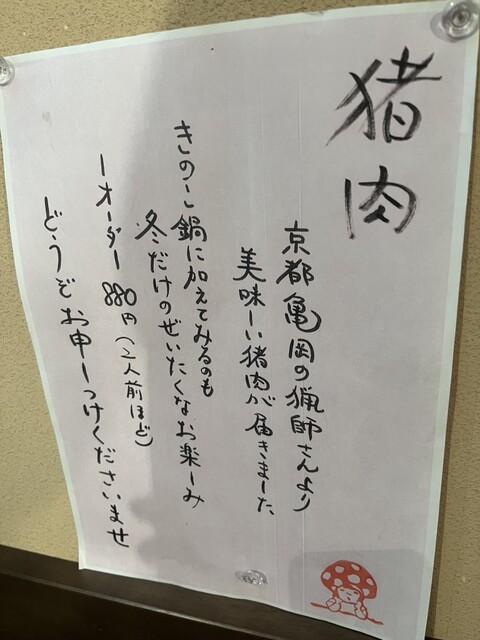 猪肉
京都亀岡の猟師さんより
美味しい猪肉が届きました
きのこ鍋に加えてみるのも
冬だけのぜいたくなお楽しみ
一オーダー880円(2人前ほど)
どうぞお申しつけくださいませ